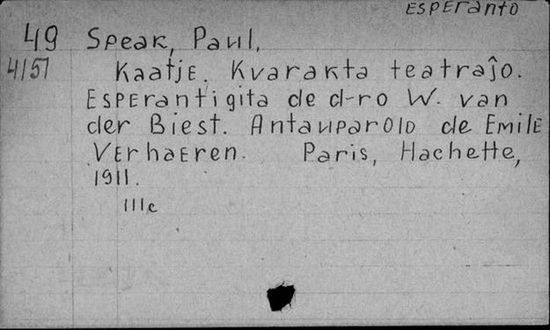 Esperanto
49 Speak, Paul,
4151 Kaatje. Kvarakta teatraĵo.
Esperantigita de d-ro W. van
der Biest. Antauparolo de Emile
Verhaeren. Paris, Hachette,
1911.
IIIc